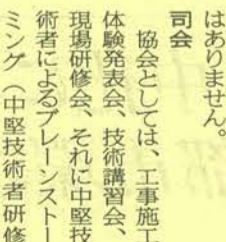 はありません。
司会
協会としては、工事施工
体験発表会、技術講習会、
現場研修会、それに中堅技
術者によるブレーンストー
ミング（中堅技術者研修